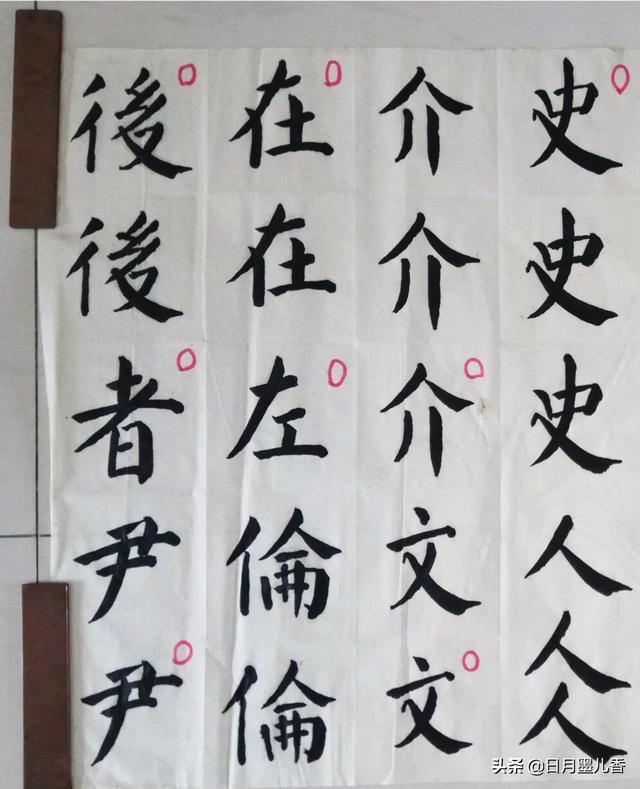 史史史人人人
介介介文文
在在左倫倫
後後者尹尹
头条 @日月墨儿香